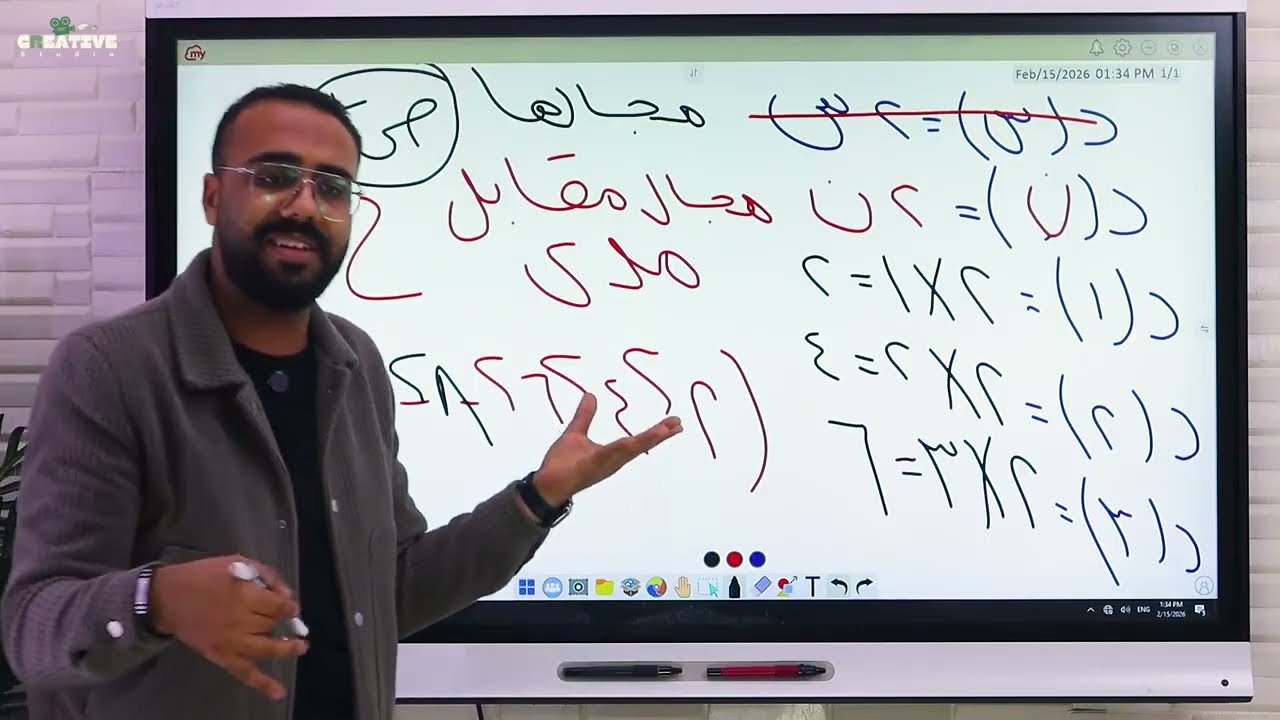 CREATIVE
Studio
my
Feb/15/2026 01:34 PM 1/1
د(س) = ٢س مجالها ص+
د(ن) = ٢ن مجال مقابل ح
مدى
د(١) = ٢×١=٢
د(٢) = ٢×٢=٤
د(٣) = ٢×٣=٦
(٢، ٤، ٦، ٨،
T
ENG
1:34 PM
2/15/2026